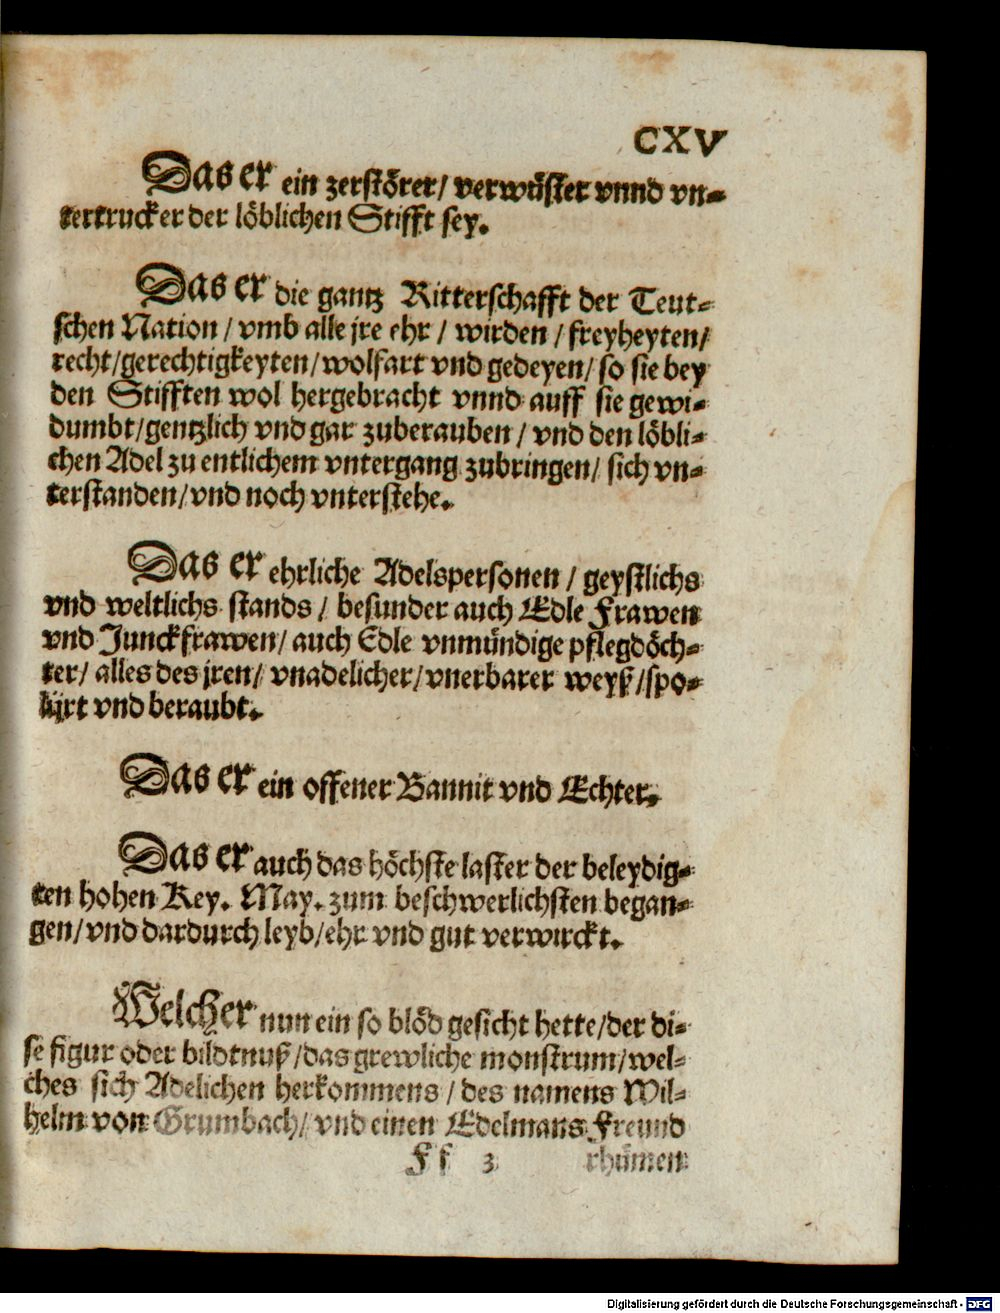 CXV
Das er ein zerstörer/ verwüster vnnd vn-
tertrucker der löblichen Stifft sey.
Das er die gantz Ritterschafft der Teut-
schen Nation/ vmb alle jre ehr/ wirden/ freyheyten/
recht/gerechtigkeyten/wolfart vnd gedeyen/ so sie bey
den Stifften wol hergebracht vnnd auff sie gewi-
dumbt/gentzlich vnd gar zuberauben/ vnd den löbli-
chen Adel zu entlichem vntergang zubringen/ sich vn-
terstanden/vnd noch vnterstehe.
Das er ehrliche Adelspersonen/ geystlichs
vnd weltlichs stands/ besunder auch Edle Frawen
vnd Junckfrawen/ auch Edle vnmündige pflegdöch-
ter/ alles des jren/ vnadelicher/vnerbarer weyß/spo-
lijrt vnd beraubt.
Das er ein offener Bannit vnd Echter.
Das er auch das höchste laster der beleydig-
ten hohen Key. May. zum beschwerlichsten began-
gen/vnd dardurch leyb/ehr vnd gut verwirckt.
Welcher nun ein so blöd gesicht hette/der di-
se figur oder bildtnuß/das grewliche monstrum/wel-
ches sich Adelichen herkommens/ des namens Wil-
helm von Grumbach/ vnd einen Edelmans Freund
Ff 3 rhümen
Digitalisierung gefördert durch die Deutsche Forschungsgemeinschaft - DFG